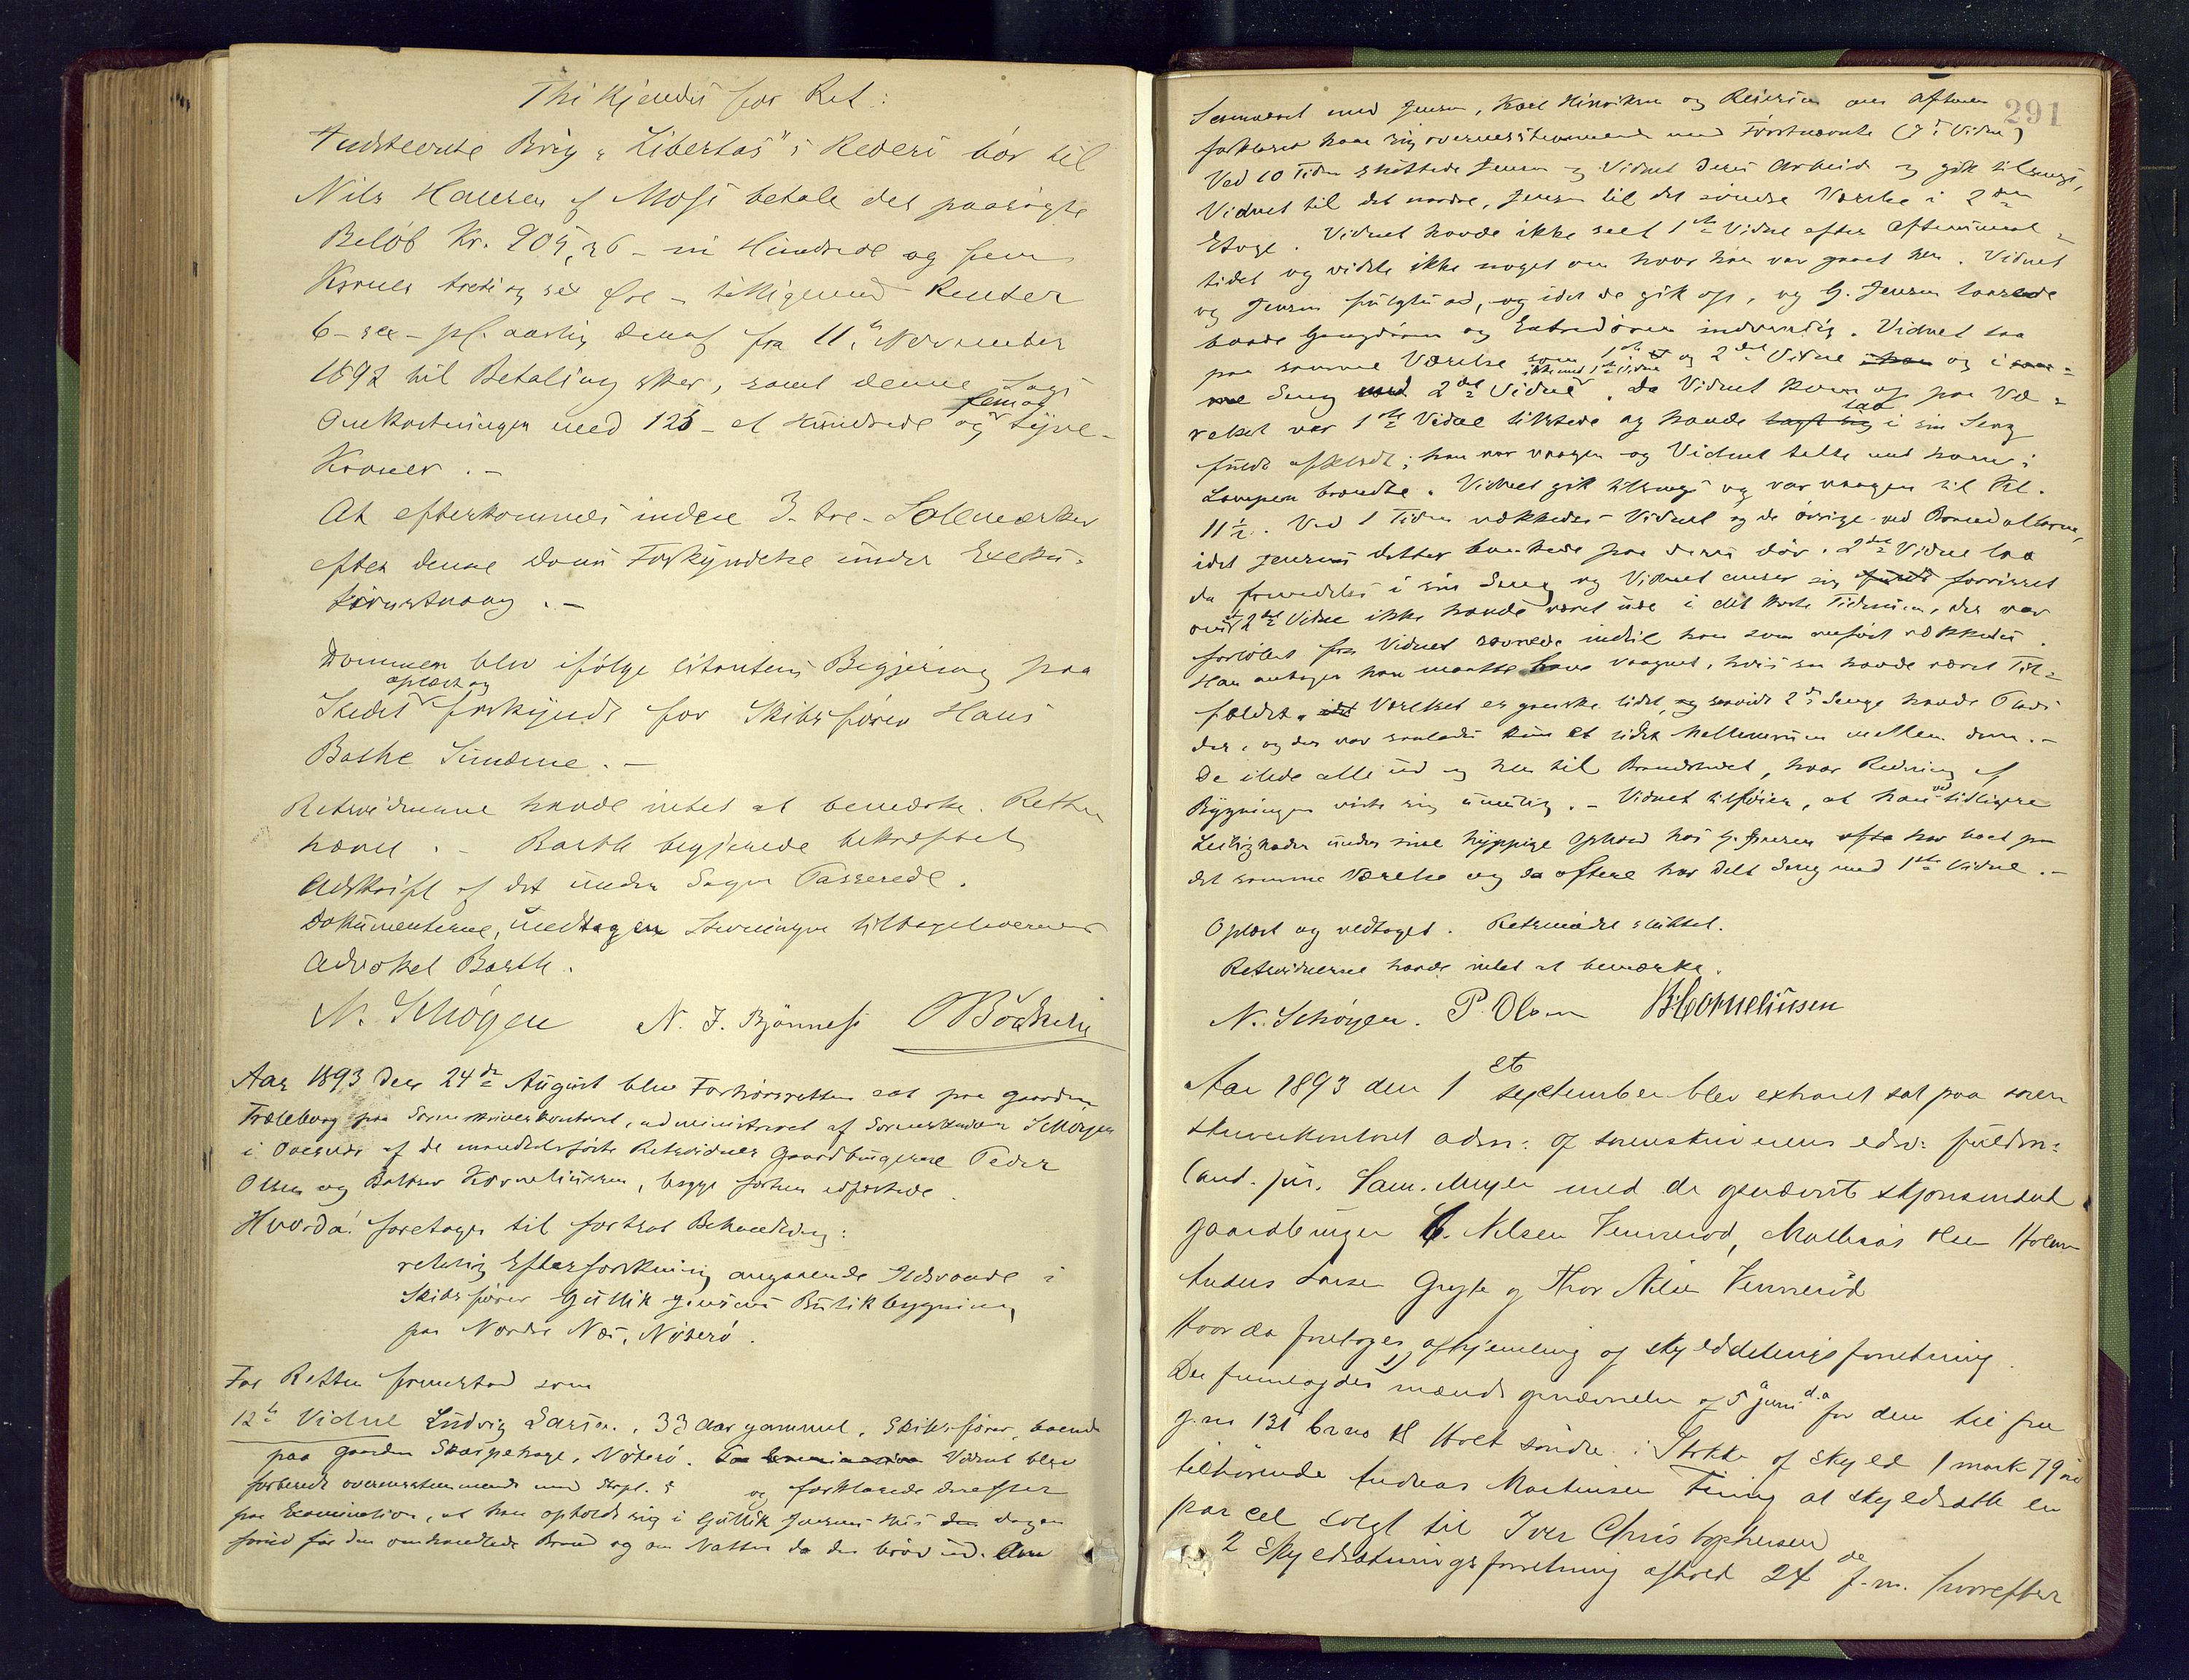 Thi kjendes for Ret:
Indstevnte Brig "Libertas"s Rederi bør til
Nils Hansen af Moss betale det paasøgte
Beløb Kr. 905,36 - ni Hundrede og fem
Kroner treti og sex Øre - tilligemed Renter
6 - sex - pCt. aarlig deraf fra 11te November
1892 til Betaling sker, samt denne Sags
Omkostninger med 125 - et Hundrede og fem og tyve -
Kroner. -
At efterkommes inden 3 - tre - Solemærker
efter denne Doms Forkyndelse under Exeku-
tionstvang. -
Dommen blev ifølge Citantens Begjæring paa
Stedet oplæst og forkyndt for Skibsfører Hans
Bathe Simonne. -
Retsvidnerne havde intet at bemærke. Retten
hævet. - Barth begjærede bekræftet
Udskrift af det under Sagen Passerede.
Dokumenterne, undtagen Stevningen tilbageleveres
Advokat Barth.
N. Schøyen N. J. Bjönness OBöckelie
Aar 1893 den 24de August blev Forhørsretten sat paa Gaarden
Træleborg paa Sorenskriverkontoret, administreret af Sorenskriver Schøyen
i Overvær af de mandtalsførte Retsvidner Gaardbrugerne Peder
Olsen og Baltser Korneliussen, begge forhen edfæstede.
Hvorda! foretages til fortsat Behandling:
retslig Efterforskning angaaende Ildsvaade i
Skibsfører Gullik Jensens Butikbygning
paa Nordre Næs, Nøterø.
For Retten fremstod som
12te Vidne Ludvig Larsen, 33 Aar gammel, Skibsfører, boende
paa Gaarden Skarpehage, Nøterø. Vidnet blev
forberedt overensstemmende med Strpl. § og forklarede derefter
paa Examination, at han opholdt sig i Gullik Jensens Hus den Dagen
forud for den omhandlede Brand og om Natten da den brød ud. Om
291
Samværet med Jensen, Karl Hinriksen og Reiersen om Aftenen
forklarer han sig overensstemmende med Førstnævnte (7de Vidne)
Ved 10 Tiden sluttede Jensen og Vidnet deres Arbeid og gik tilsengs,
Vidnet til det nordre, Jensen til det søndre Værelse i 2den
Etage. Vidnet havde ikke seet 1ste Vidne efter Aftensmad-
tidet og vidste ikke noget om hvor han var gaaet hen. Vidnet
og Jensen fulgtes ad, og idet de gik op, og G. Jensen laasede
baade Gangdøren og Entredøren indvendig. Vidnet laa
paa samme Værelse som 1ste og 2det Vidne og i sam-
me Seng med 2det Vidne ikke med 1ste Vidne. Da Vidnet kom op paa Væ-
relset var 1ste Vidne tilstede og havde lagt sig laa i sin Seng
fuldt afklædt; han var vaagen og Vidnet talte med ham;
Lampen brændte. Vidnet gik tilsengs og var vaagen til Kl.
11½. Ved 1 Tiden vækkedes Vidnet og de øvrige ved Brandallarm,
idet Jensens Datter bankede paa deres Dør. 2det Vidne laa
da fremdeles i sin Seng og Vidnet anser sig forvisset
om at 2det Vidne ikke havde været ude i det korte Tidsrum, der var
forløbet fra Vidnet sovnede indtil han som anført vækkedes.
Han antager han maatte have vaagnet, hvis saa havde været Til-
fældet. Værelset er ganske lidet, og saavidt 2de Senge havde Plads
der, og der var saaledes kun et lidet Mellemrum mellem dem. -
De ilede alle ud og hen til Brandstedet, hvor Redning af
Bygningen viste sig umulig. - Vidnet tilføier, at han ved tidligere
Leiligheder under sine hyppige Ophold hos G. Jensen ofte har boet paa
det samme Værelse og da oftere har delt Seng med 1ste Vidne. -
Oplæst og vedtaget. Retsmødet sluttet.
Retsvidnerne havde intet at bemærke.
N. Schøyen. P. Olsen B.Corneliussen
Aar 1893 den 1ste September blev extraret sat paa soren
skriverkontoret adm: af sorenskriverens edsv: fuldm:
Cand. jur. Sam. Meyer med de opnævnte skjønsmænd
gaardbruger C. Nilsen Vennerød, Mathias Olsen Holmen
Anders Larsen Gryte og Thor Nilsen Vennerød
Hvor da foretoges afhjemling af skylddelingsforretning.
Der fremlagdes 1) mænds opnævnelse af 5 juni d.a for dem til fra
g.no 131 br.no 8 Holt søndre i Stokke af skyld 1 mark 79 øre
tilhørende Andreas Martinsen Fining at skyldsætte en
parcel solgt til Iver Christophersen
2 Skyldsætningsforretning afholdt 24de f.m. hvorefter